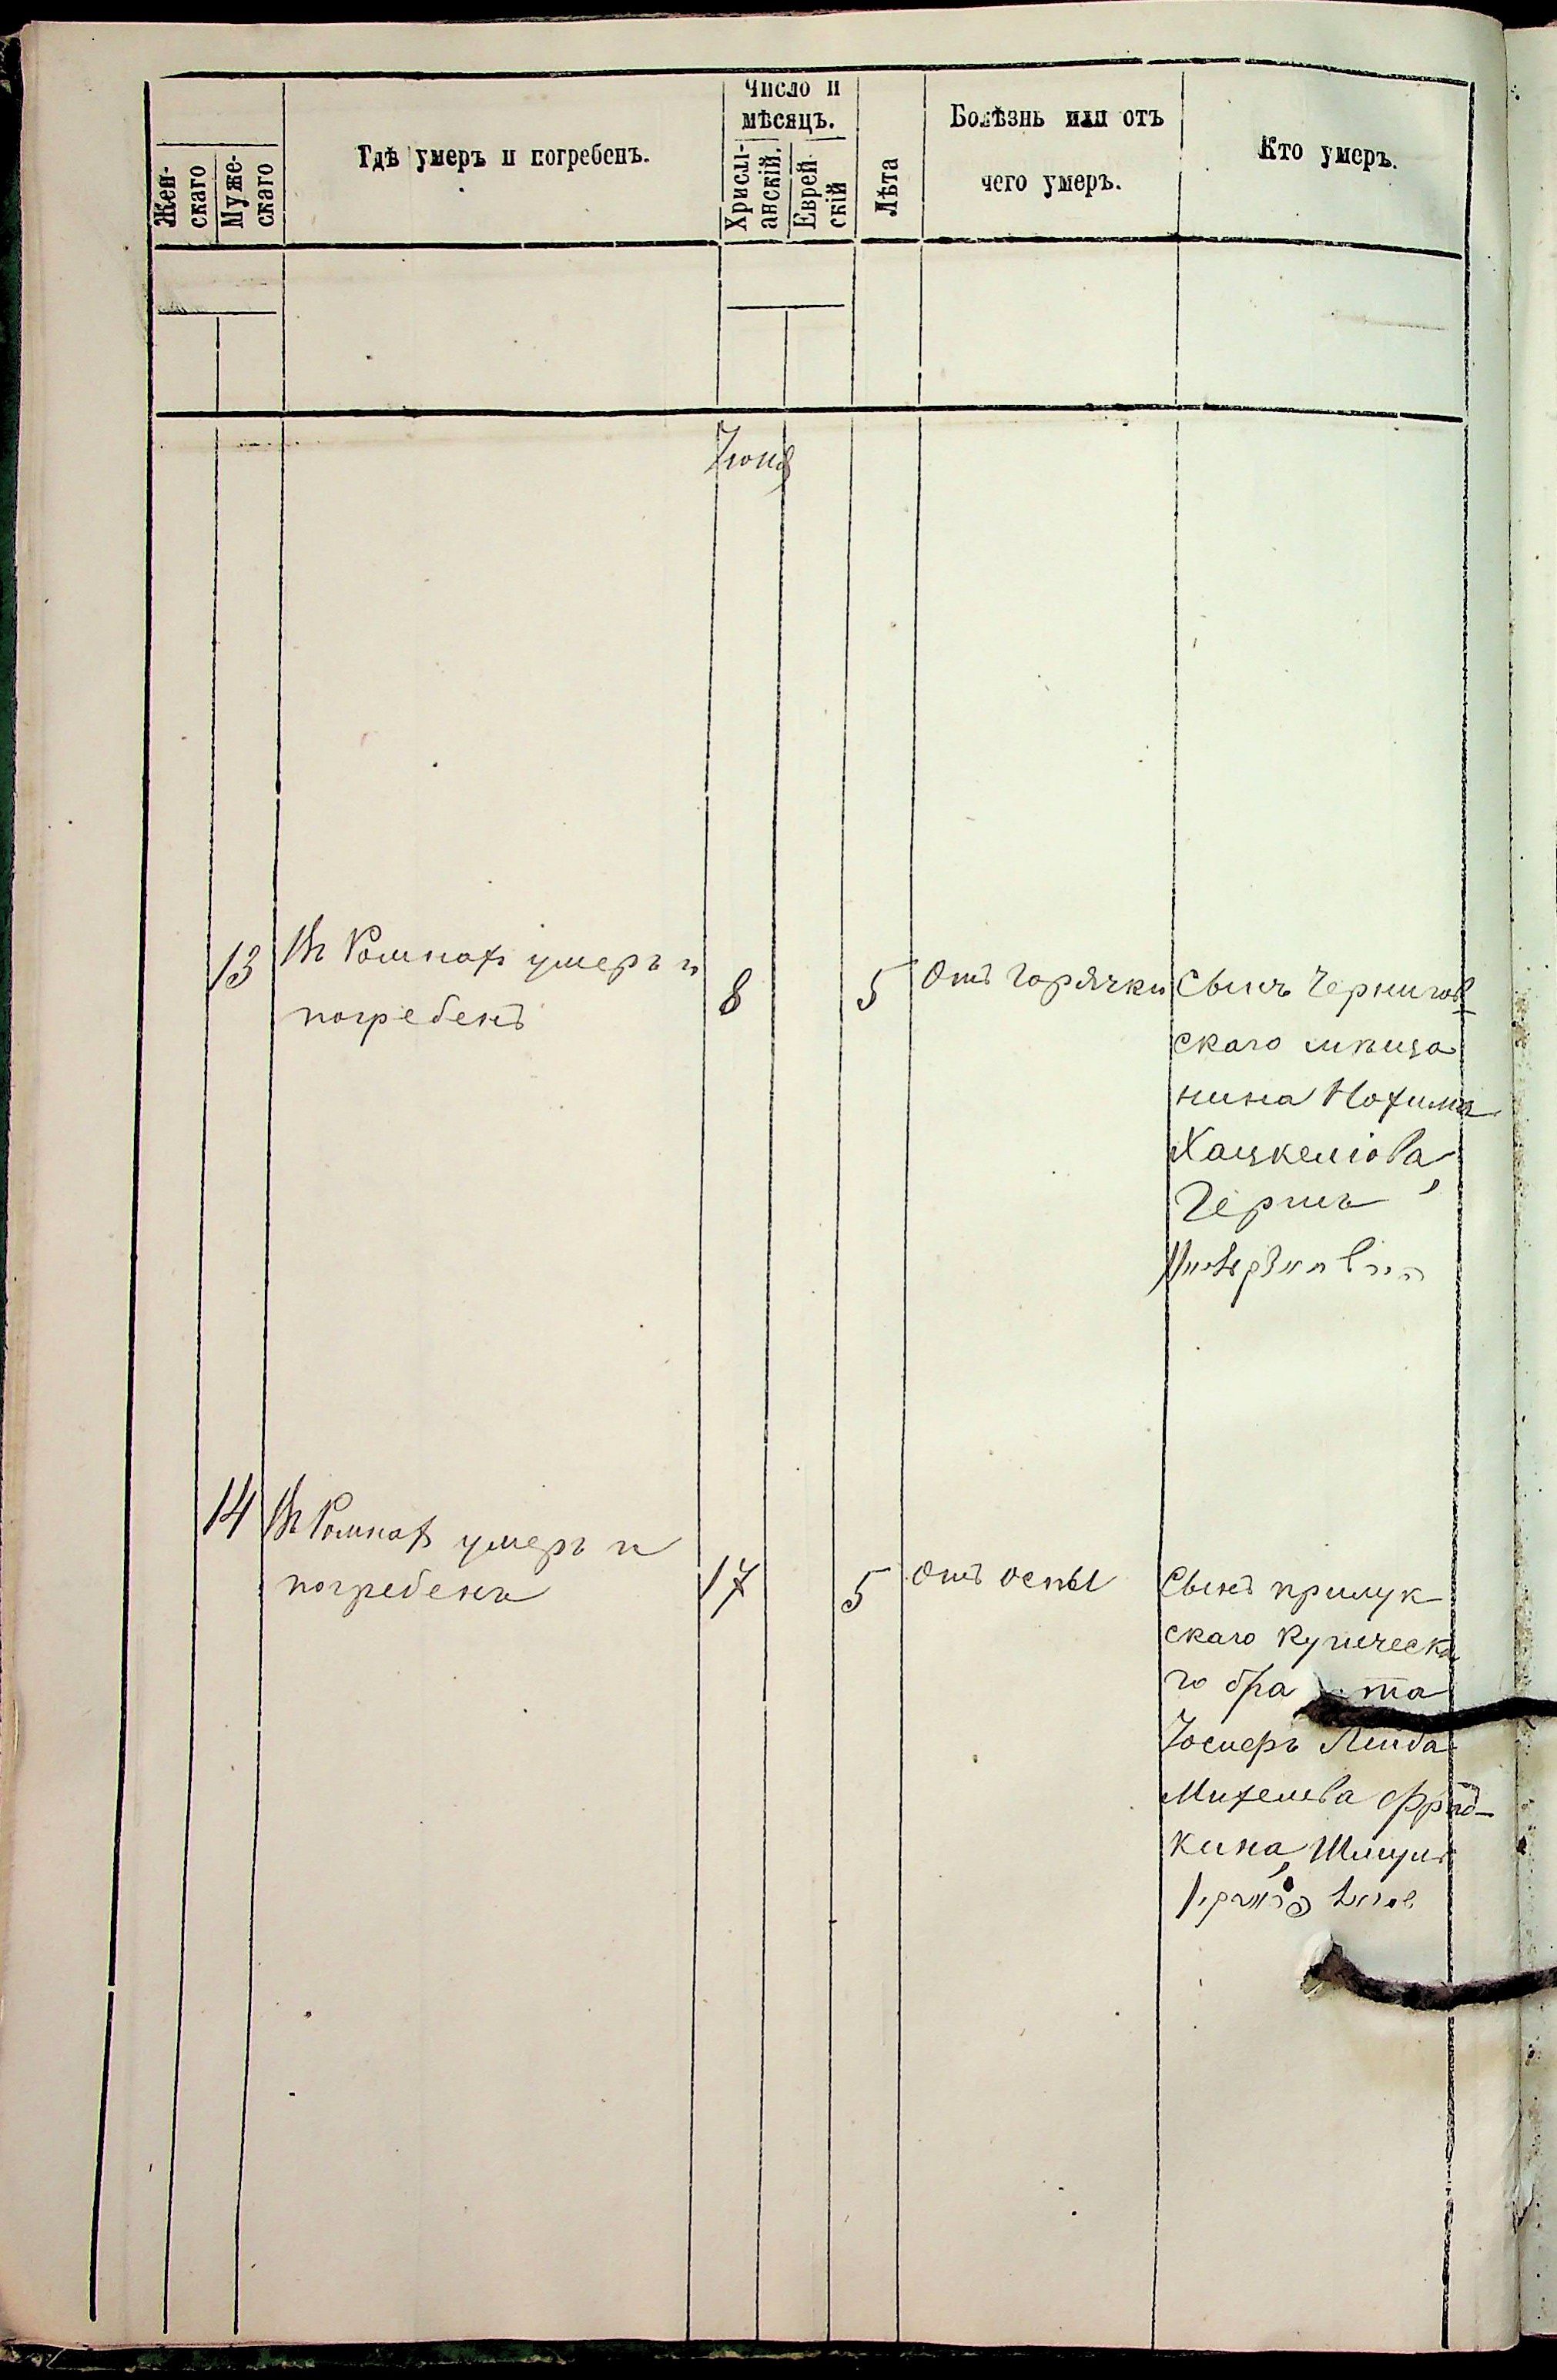 Жен-
скаго
Муже-
скаго
Гдѣ умеръ и погребенъ.
Число и
мѣсяцъ.
Христі-
анскій.
Еврей-
скій
Лѣта
Болѣзнь или отъ
чего умеръ.
Кто умеръ.
Іюня
13
Въ Ромнахъ умеръ и
погребенъ
8
5
Отъ горячки
Сынъ Чернигов-
скаго мѣща
нина Нохима
Хацкелiова
14
Въ Ромнахъ умеръ и
погребенъ
17
5
Отъ оспы
Сынъ прилук
скаго купческа
го бра та
Лейба
Михелева Фрид-
кина,